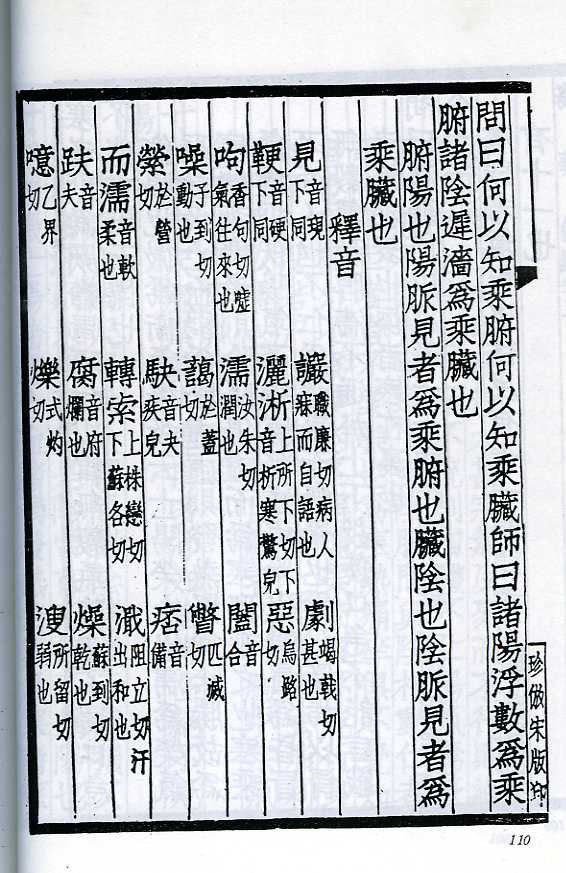 珍倣宋版印
問曰何以知乘腑何以知乘臟師曰諸陽浮數爲乘
腑諸陰遲濇爲乘臟也
腑陽也陽脈見者爲乘腑也臟陰也陰脈見者爲
乘臟也
釋音
見音現下同 讝職廉切病人寐而自語也 劇竭戟切甚也
鞕音硬下同 灑淅上所下切下音析寒驚皃 惡烏路切
呴香句切噓氣往來也 濡汝朱切潤也 闔音合
噪子到切動也 藹於蓋切 瞥匹滅切
縈於營切 駃音夬疾皃 痞音備
而濡音軟柔也 轉索上株戀切下蘇各切 濈阻立切汗出和也
趺音夫 腐音府爛也 燥蘇到切乾也
噫乙界切 爍式灼切 溲所留切弱也
110